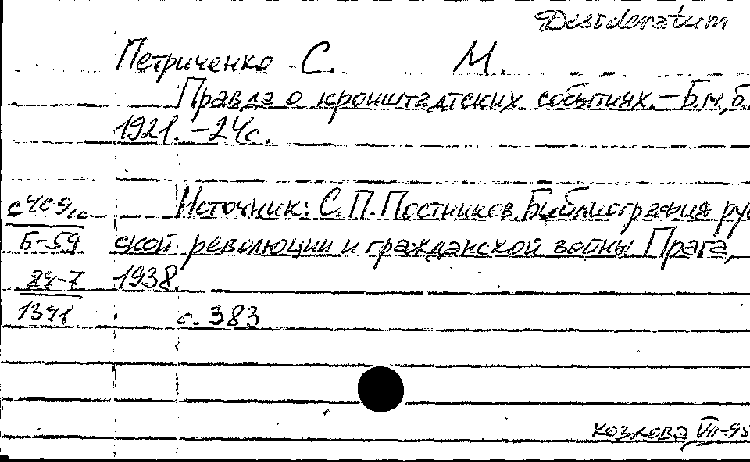 Desideratum
Петриченко С. М.
Правда о кронштадтских событиях.-Б.м,б.
1921.-24с.
Источник: С.П.Постников Библиография рус
ской революции и гражданской войны Прага,
Б-59
1938.
с. 383
Козлова VIII-95